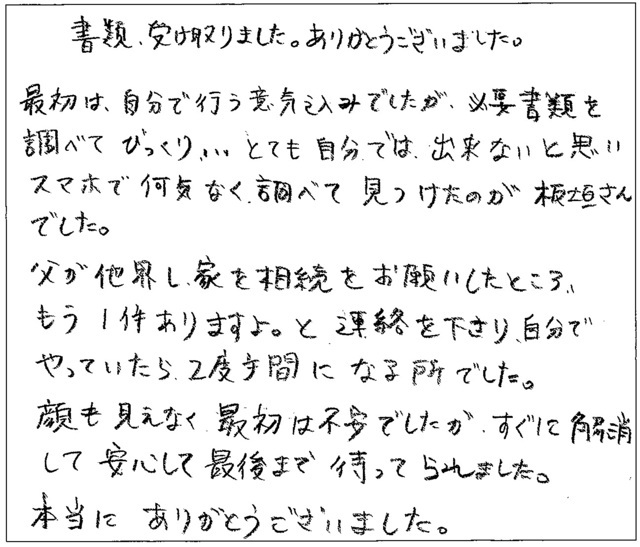 書類、受け取りました。ありがとうございました。
最初は、自分で行う意気込みでしたが、必要書類を
調べてびっくり、、、とても自分では、出来ないと思い
スマホで何気なく、調べて見つけたのが板垣さん
でした。
父が他界し、家を相続をお願いしたところ、
もう1件ありますよ。と連絡を下さり、自分で
やっていたら、2度手間になる所でした。
顔も見えなく、最初は不安でしたが、すぐに解消
して安心して最後まで待ってられました。
本当にありがとうございました。